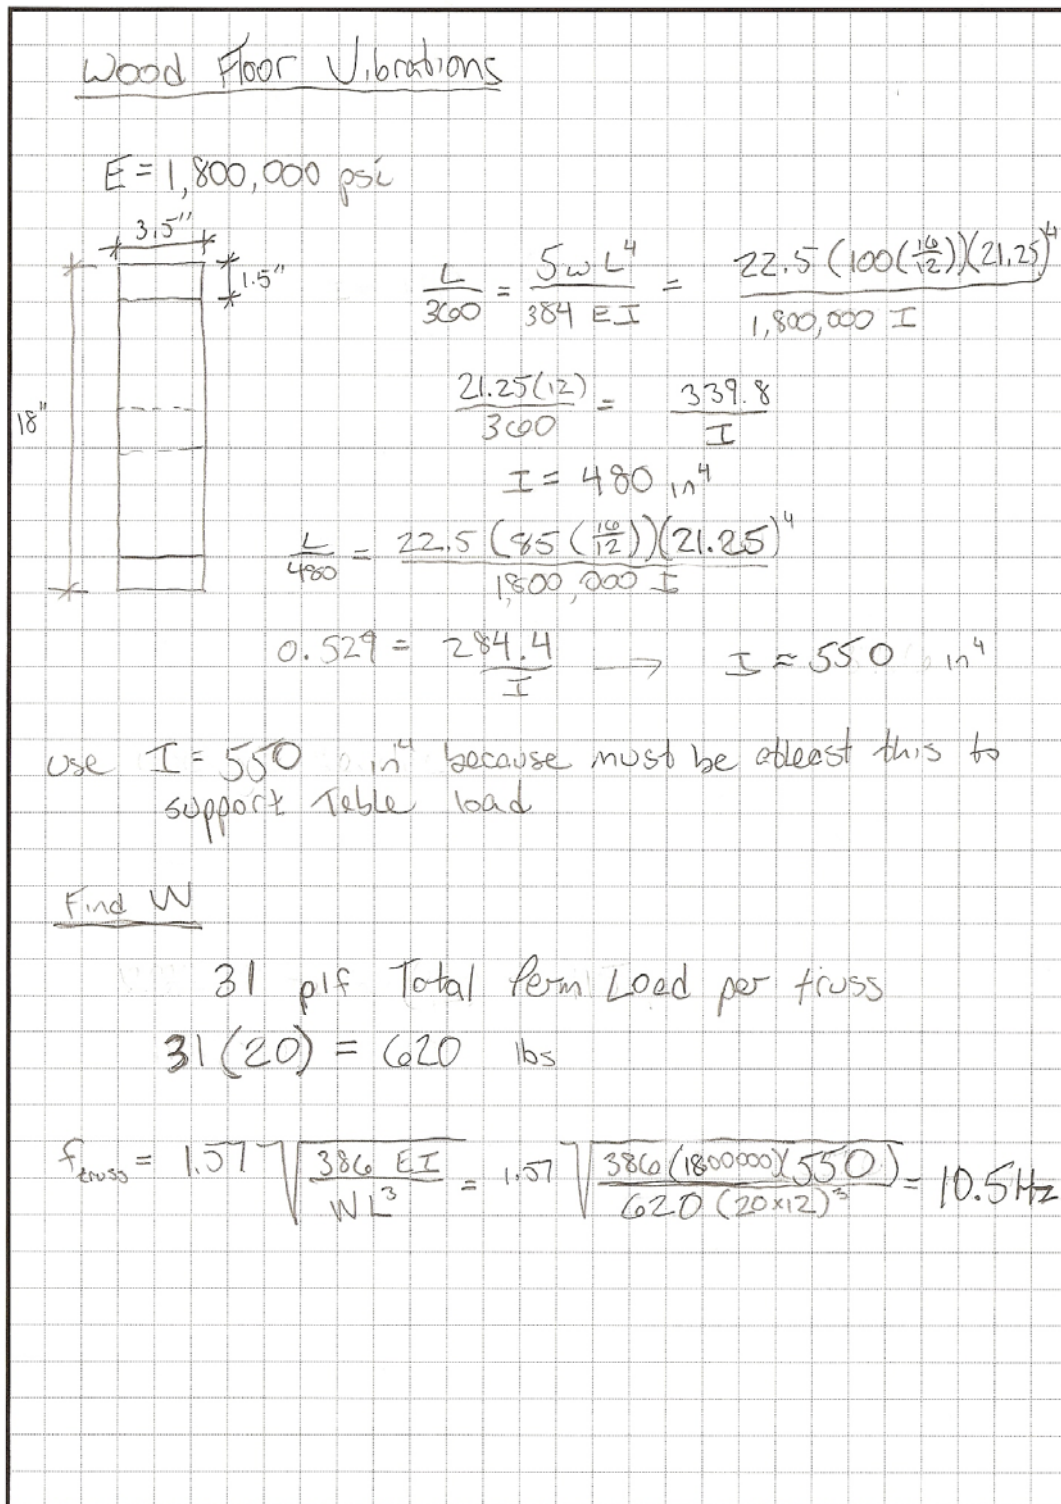 Wood Floor Vibrations
E = 1,800,000 psi
3.5"
1.5"
18"
L/360 = 5wL⁴/384 EI = 22.5 (100(16/12))(21.25)⁴/1,800,000 I
21.25(12)/360 = 339.8/I
I = 480 in⁴
L/480 = 22.5 (85 (16/12))(21.25)⁴/1,800,000 I
0.529 = 284.4/I → I = 550 in⁴
use I = 550 in⁴ because must be atleast this to
support Table load
Find W
31 plf Total Perm Load per truss
31(20) = 620 lbs
f truss = 1.57 √(386 EI/WL³) = 1.57 √(386(1800000)(550)/620(20x12)³) = 10.5Hz